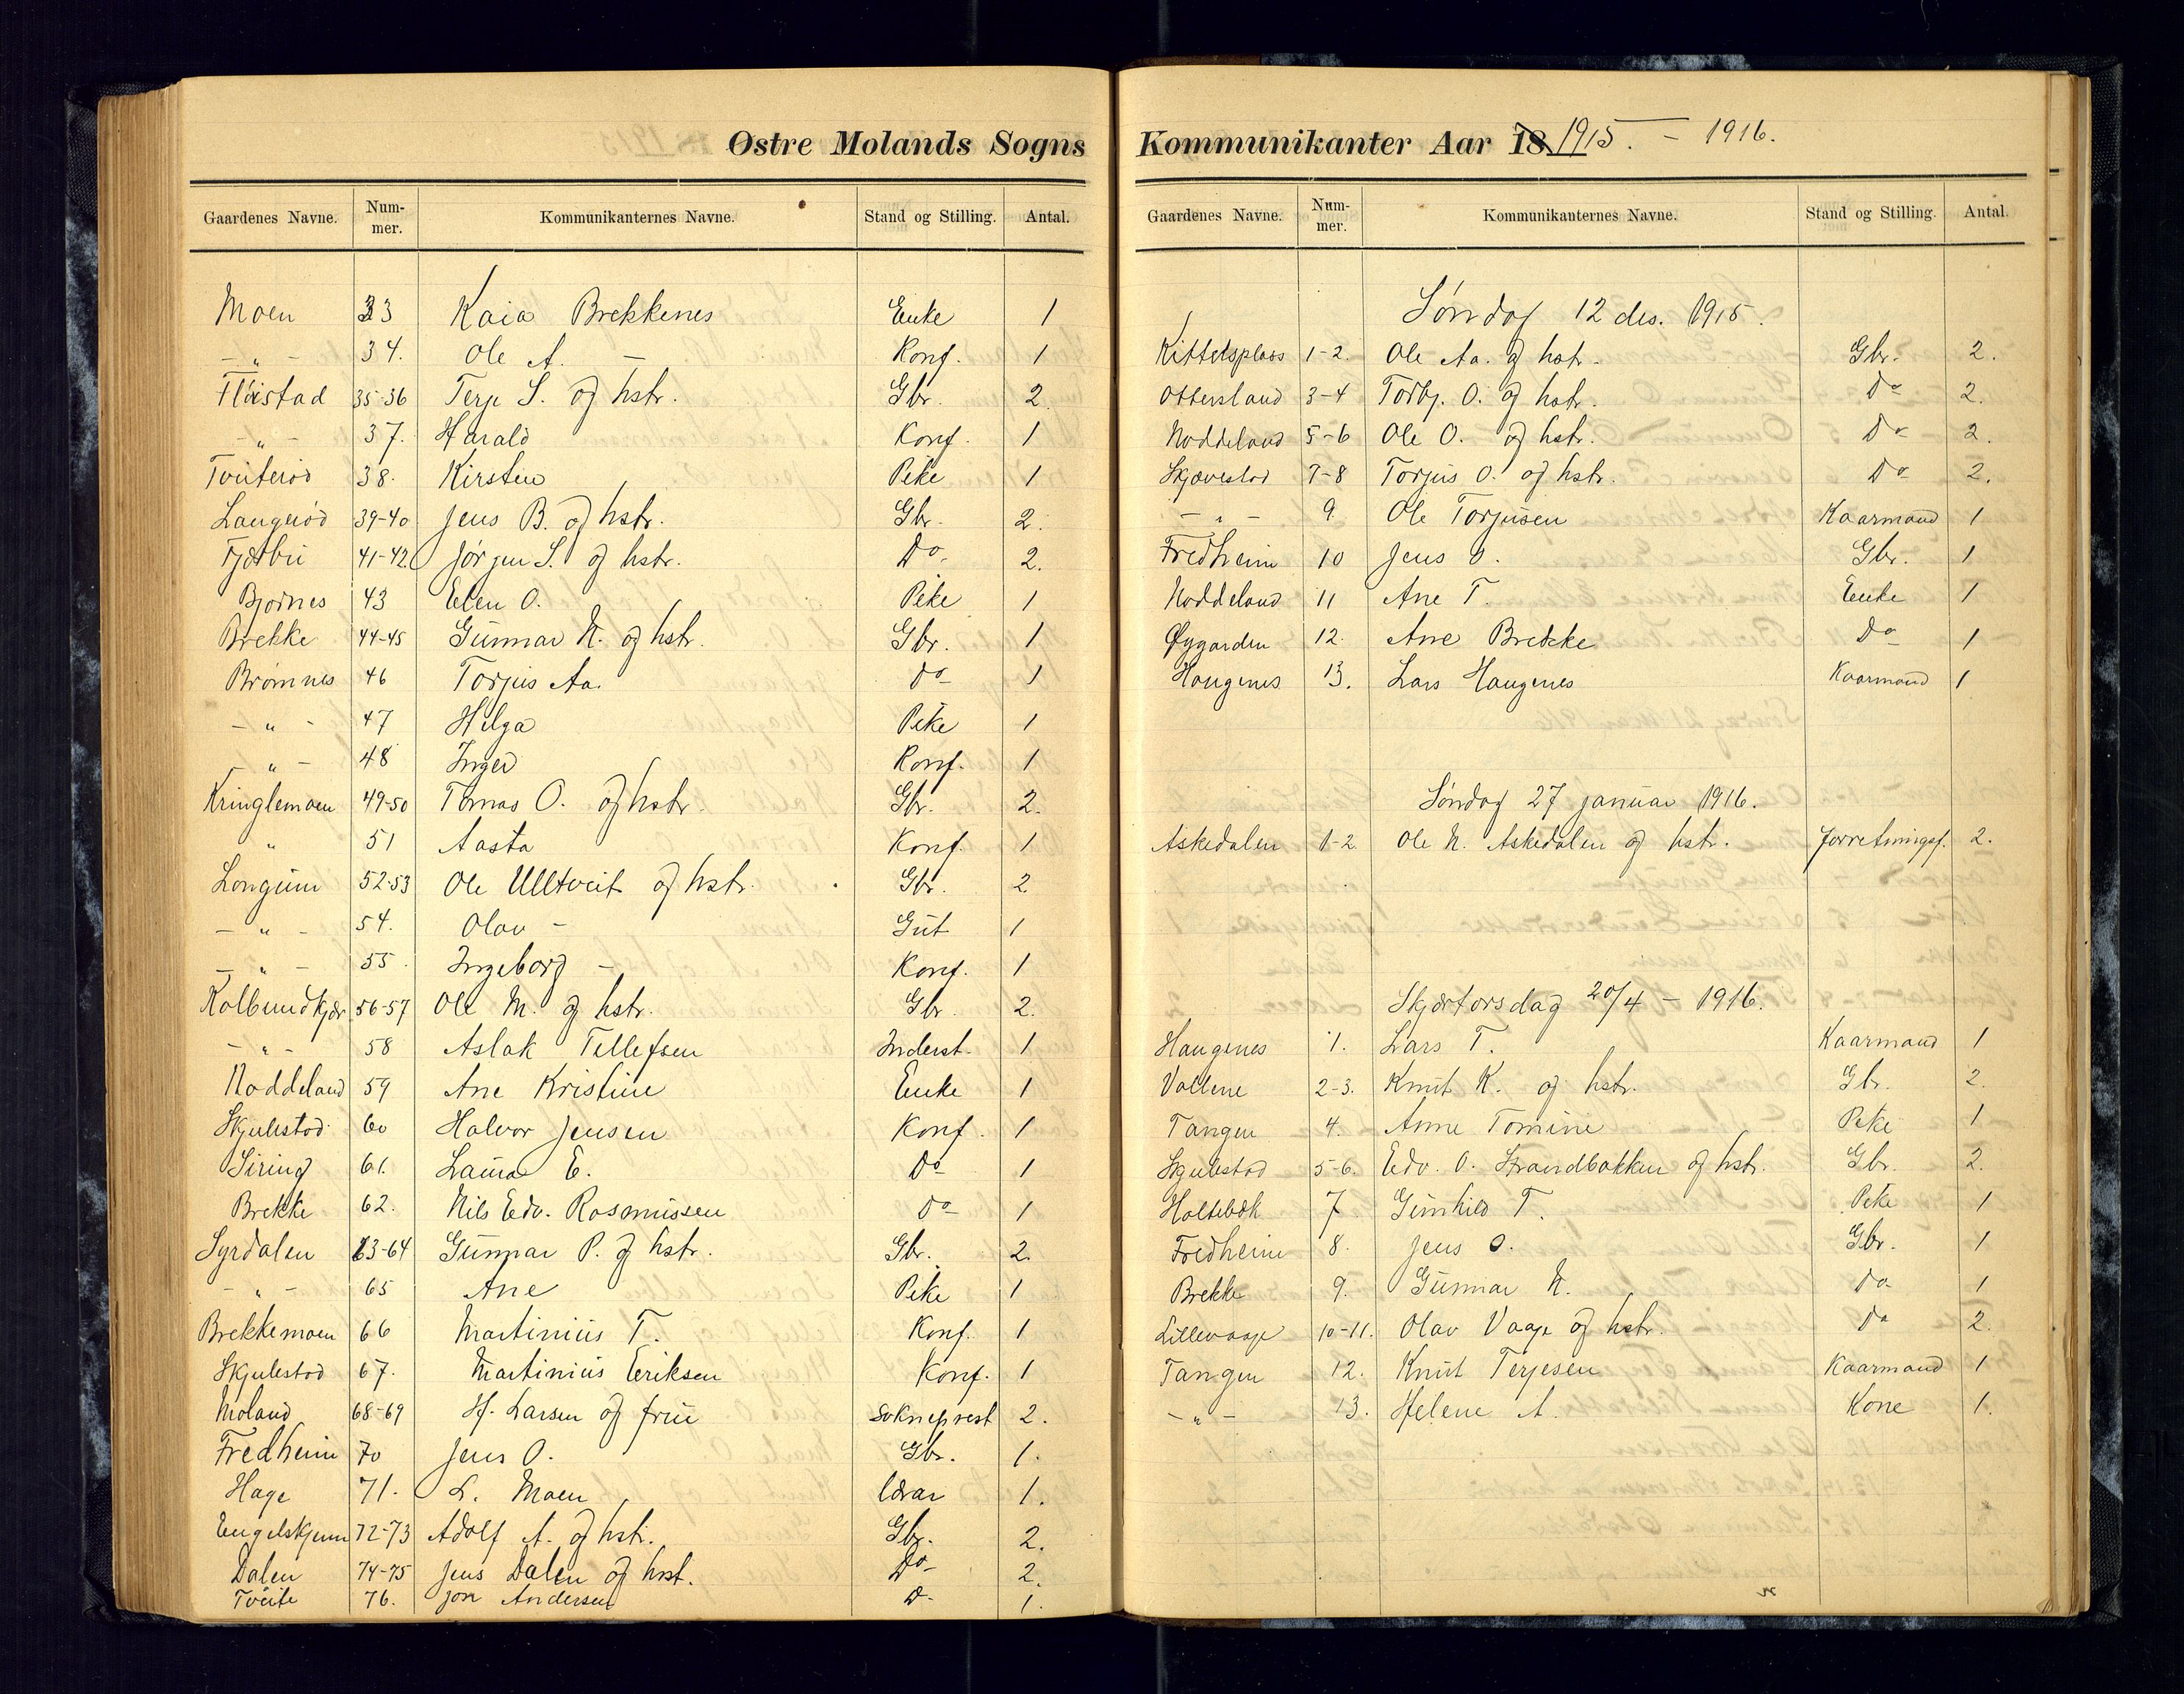 Østre Molands Sogns
Gaardenes Navne. Num-mer. Kommunikanternes Navne. Stand og Stilling. Antal.
Moen 33 Kaia Brekkenes Enke 1
- " - 34. Ole A. — Konf. 1
Fløistad 35-36 Terje S. og hstr. Gbr. 2.
- " - 37. Harald Konf. 1
Tviterød 38. Kirsten Pike 1
Langerød 39-40 Jens B. og hstr. Gbr. 2.
Fjærbu 41-42 Jørgen S. og hstr. Do 2.
Bjornes 43 Elen O. Pike 1
Brekke 44-45 Gunnar N. og hstr. Gbr. 1
Brømnes 46 Torjus Aa. Do 1
- " - 47 Helga Pike 1
- " - 48 Inger Konf. 1
Kringlemoen 49-50 Tomas O. og hstr. Gbr. 2.
" 51 Aasta Konf. 1
Longum 52-53 Ole Ulltveit og hstr. Gbr. 2
- " - 54. Olav - Gut 1
- " - 55. Ingeborg - Konf. 1
Kolbundkjær 56-57 Ole M. og hstr. Gbr. 2.
- " - 58 Aslak Tellefsen Inderst. 1
Noddeland 59 Ane Kristine Enke 1
Skjulestad 60 Halvor Jensen Konf. 1
Siring 61. Laura E. Do 1
Brekke 62. Nils Edv. Rasmussen Do 1
Syrdalen 63-64 Gunnar P. og hstr. Gbr. 2.
- " - 65 Ane Pike 1
Brekkemoen 66 Martinius T. Konf. 1
Skjulestad 67. Martinius Eriksen Konf. 1
Moland 68-69 H. Larsen og frue Sokneprest 2.
Fredheim 70 Jens O. Gbr. 1.
Hage 71. L. Moen lærar 1.
Engelskjønn 72-73 Adolf A. og hstr. Gbr. 2.
Dalen 74-75 Jens Dalen og hust. Do 2.
Tveite 76. Jon Andersen D- 1.
Kommunikanter Aar 18 1915. - 1916.
Gaardenes Navne. Num-mer. Kommunikanternes Navne. Stand og Stilling. Antal.
Søndag 12 des. 1915.
Kittelsplass 1-2. Ole Aa. og hstr. Gbr. 2.
Ottersland 3-4 Torbj. O. og hstr. Do 2.
Noddeland 5-6 Ole O. og hstr. Do 2.
Skjævestad 7-8 Torjus O. og hstr. Do 2.
- " - 9. Ole Torjusen Kaarmand 1
Fredheim 10 Jens O. Gbr. 1
Noddeland 11 Ane T. Enke 1
Øygarden 12. Ane Brekke Do 1
Haugenes 13. Lars Haugenes Kaarmand 1
Søndag 27 januar 1916.
Askedalen 1-2 Ole N. Askedalen og hstr. forretningsf. 2.
Skjærtorsdag 20/4 - 1916.
Haugenes 1. Lars T. Kaarmand 1
Vallene 2-3. Knut K. og hstr. Gbr. 2.
Tangen 4. Anne Tomine Pike 1
Skjulestad 5-6. Edv. O. Strandbakken og hstr. Gbr. 2.
Holtebæk 7 Gunhild T. Pike 1
Fredheim 8. Jens O. Gbr. 1
Brekke 9. Gunnar N. Do 1
Lillevaaje 10-11. Olav Vaaje og hstr. Do 2.
Tangen 12. Knut Terjesen Kaarmand 1
- " - 13. Helene A. Kone 1.